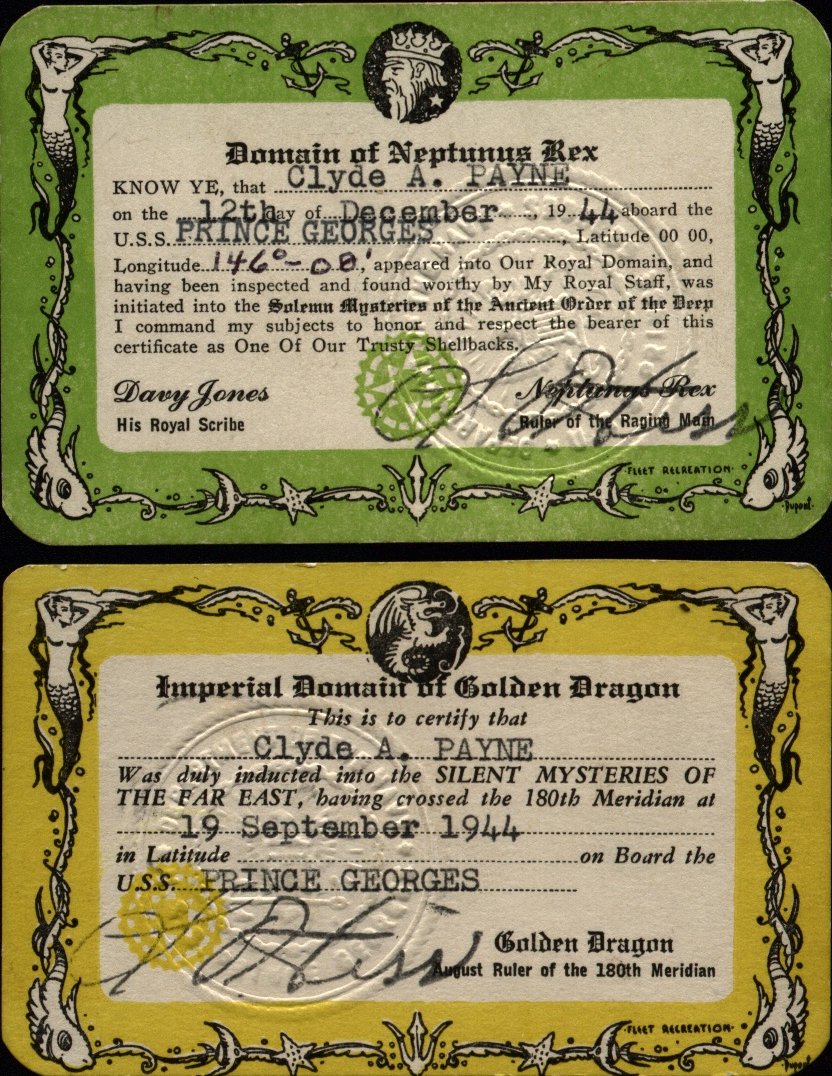 Domain of Neptunus Rex
KNOW YE, that Clyde A. PAYNE
on the 12th day of December, 1944 aboard the
U.S.S. PRINCE GEORGES, Latitude 00 00,
Longitude 146°-00', appeared into Our Royal Domain, and
having been inspected and found worthy by My Royal Staff, was
initiated into the Solemn Mysteries of the Ancient Order of the Deep
I command my subjects to honor and respect the bearer of this
certificate as One Of Our Trusty Shellbacks.
Davy Jones Neptunus Rex
His Royal Scribe Ruler of the Raging Main
·FLEET RECREATION·
·Dupont·
Imperial Domain of Golden Dragon
This is to certify that
Clyde A. PAYNE
Was duly inducted into the SILENT MYSTERIES OF
THE FAR EAST, having crossed the 180th Meridian at
19 September 1944
in Latitude on Board the
U.S.S. PRINCE GEORGES
Golden Dragon
August Ruler of the 180th Meridian
·FLEET RECREATION·
Dupont